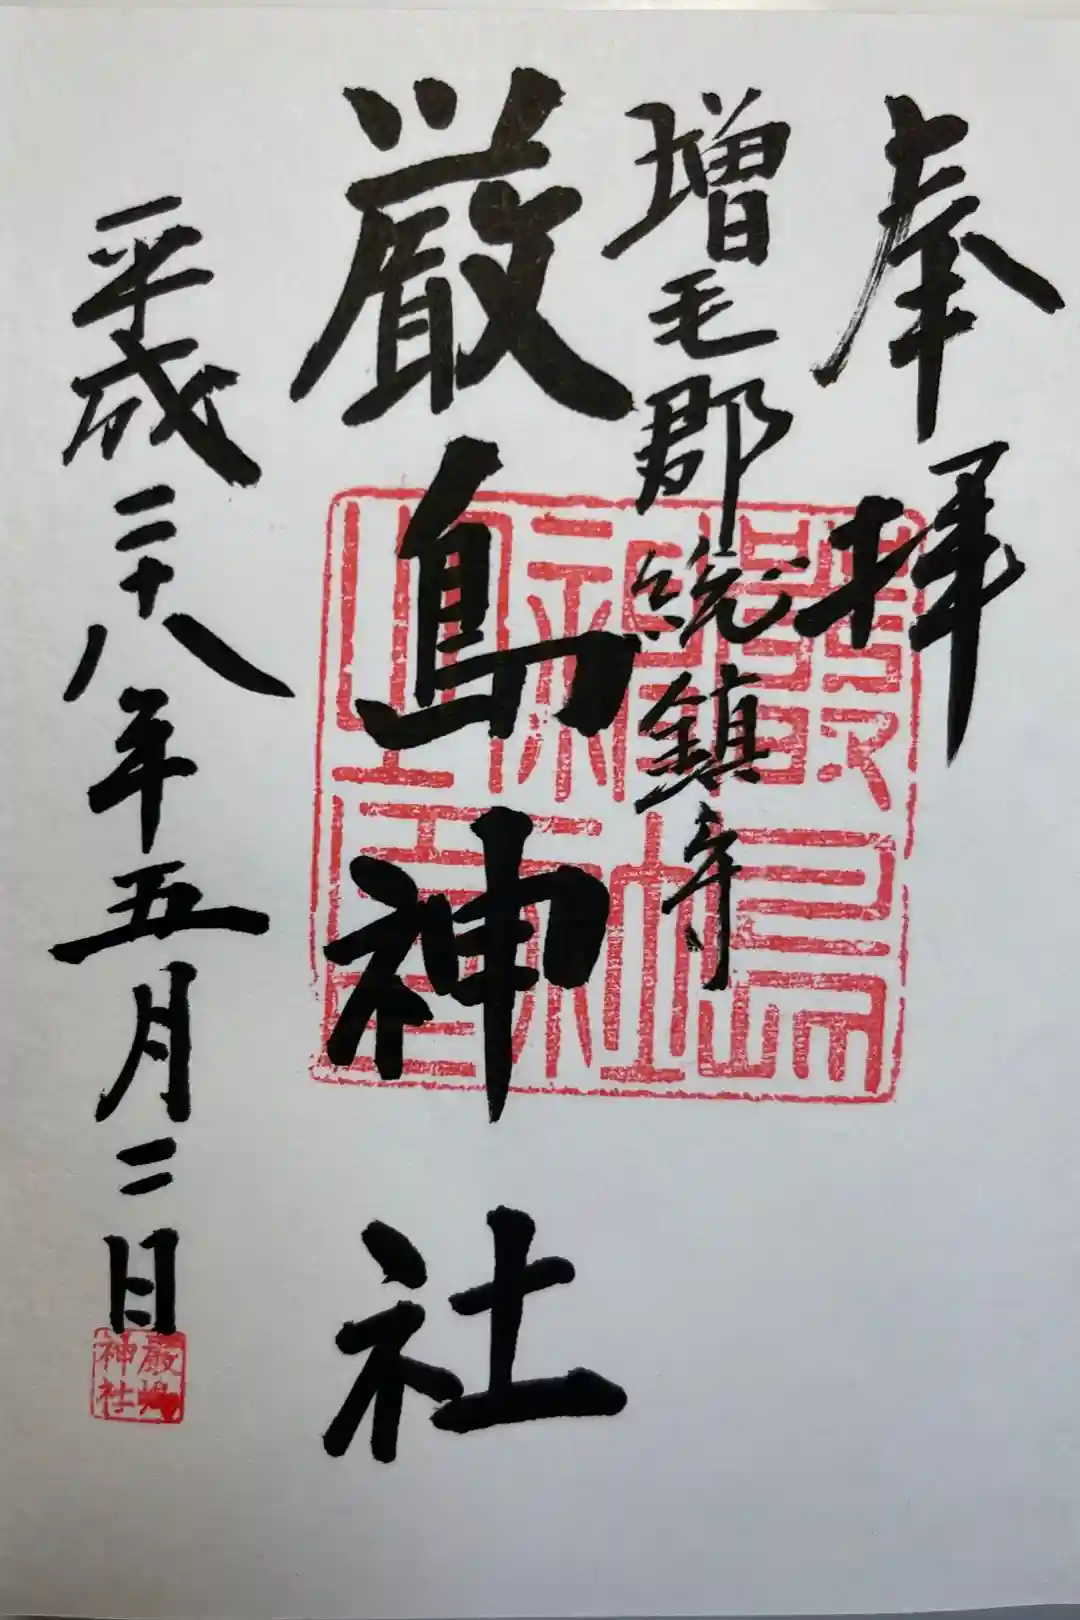 奉拝
増毛郡総鎮守
厳島神社
平成二十八年五月二日
厳嶋
神社